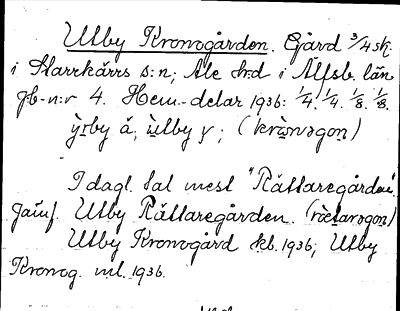 Utby Kronogården. Gård 3/4 sk.
i Starrkärrs s:n; Ale h:d i Älfsb. län
Jb-n:r 4. Hem.-delar 1936: 1/4. 1/4. 1/8. 1/8.
by å; ùlby y; (krònogon)
I dagl. tal mest "Rättaregården".
Jämf. Utby Rättaregården. (rætarogon)
Utby Kronogård kb. 1936; Utby
Kronog. ml. 1936.